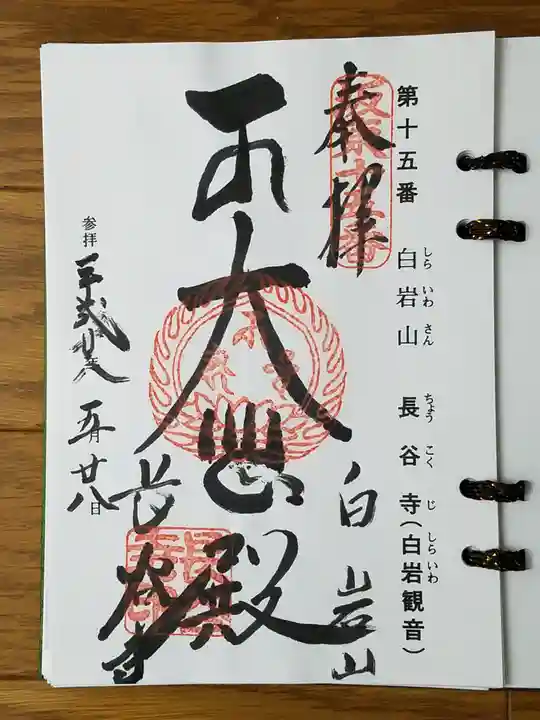 第十五番 白岩山 長谷寺(白岩観音)
しら いわ さん ちょう こく じ しらいわ
奉拝
坂東十五番
白岩山
大悲殿
長谷寺
参拝
五月廿八日